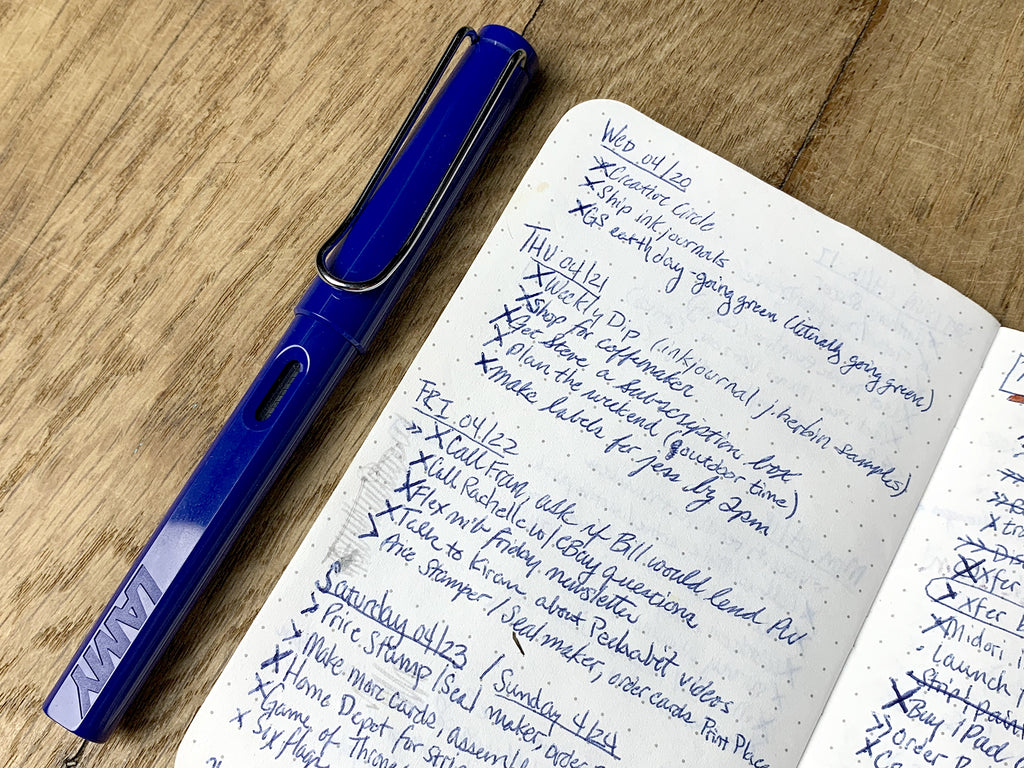 LAMY
WED 04/20
X Creative Circle
X Ship inkjournals
X GS earth day - going green (literally going green)
THU 04/21
X Weekly Dip (inkjournal j. herbin samples)
X Shop for coffeemaker
X Get Steve a subscription box
X Plan the weekend (outdoor time)
X make labels for jess by 2pm
FRI 04/22
» X Call Fran, ask if Bill would lend PW
X Call Rachelle w/ eBay questions
X Flex nib friday newsletter
X Talk to Kiran about Peekabit videos
> Price Stamper / Seal maker, order cards Print Place
Saturday 04/23 / Sunday 4/24
> Price Stamp / Seal maker, order
> Make more cards, assemble
X Home Depot for
X Game of Thrones
X Six flags
X
X Xfer
> Xfer
X Midori
· Launch
Strip / Paint
X Buy iPad
» Order
X